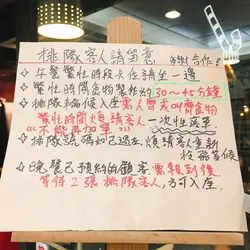 排隊客人請留意
謝謝合作!
◇午餐繁忙時段卡位請坐一邊
◇繁忙時間食物製作約30~45分鐘
◇排隊輪候入座需人齊或叫齊食物
繁忙時間煩請客人一次性落單
不能再加單
◇排隊號碼如已過左,煩請客重新
◇晚餐已預約的顧客需報到後
等待2張排隊客人,方可入座.